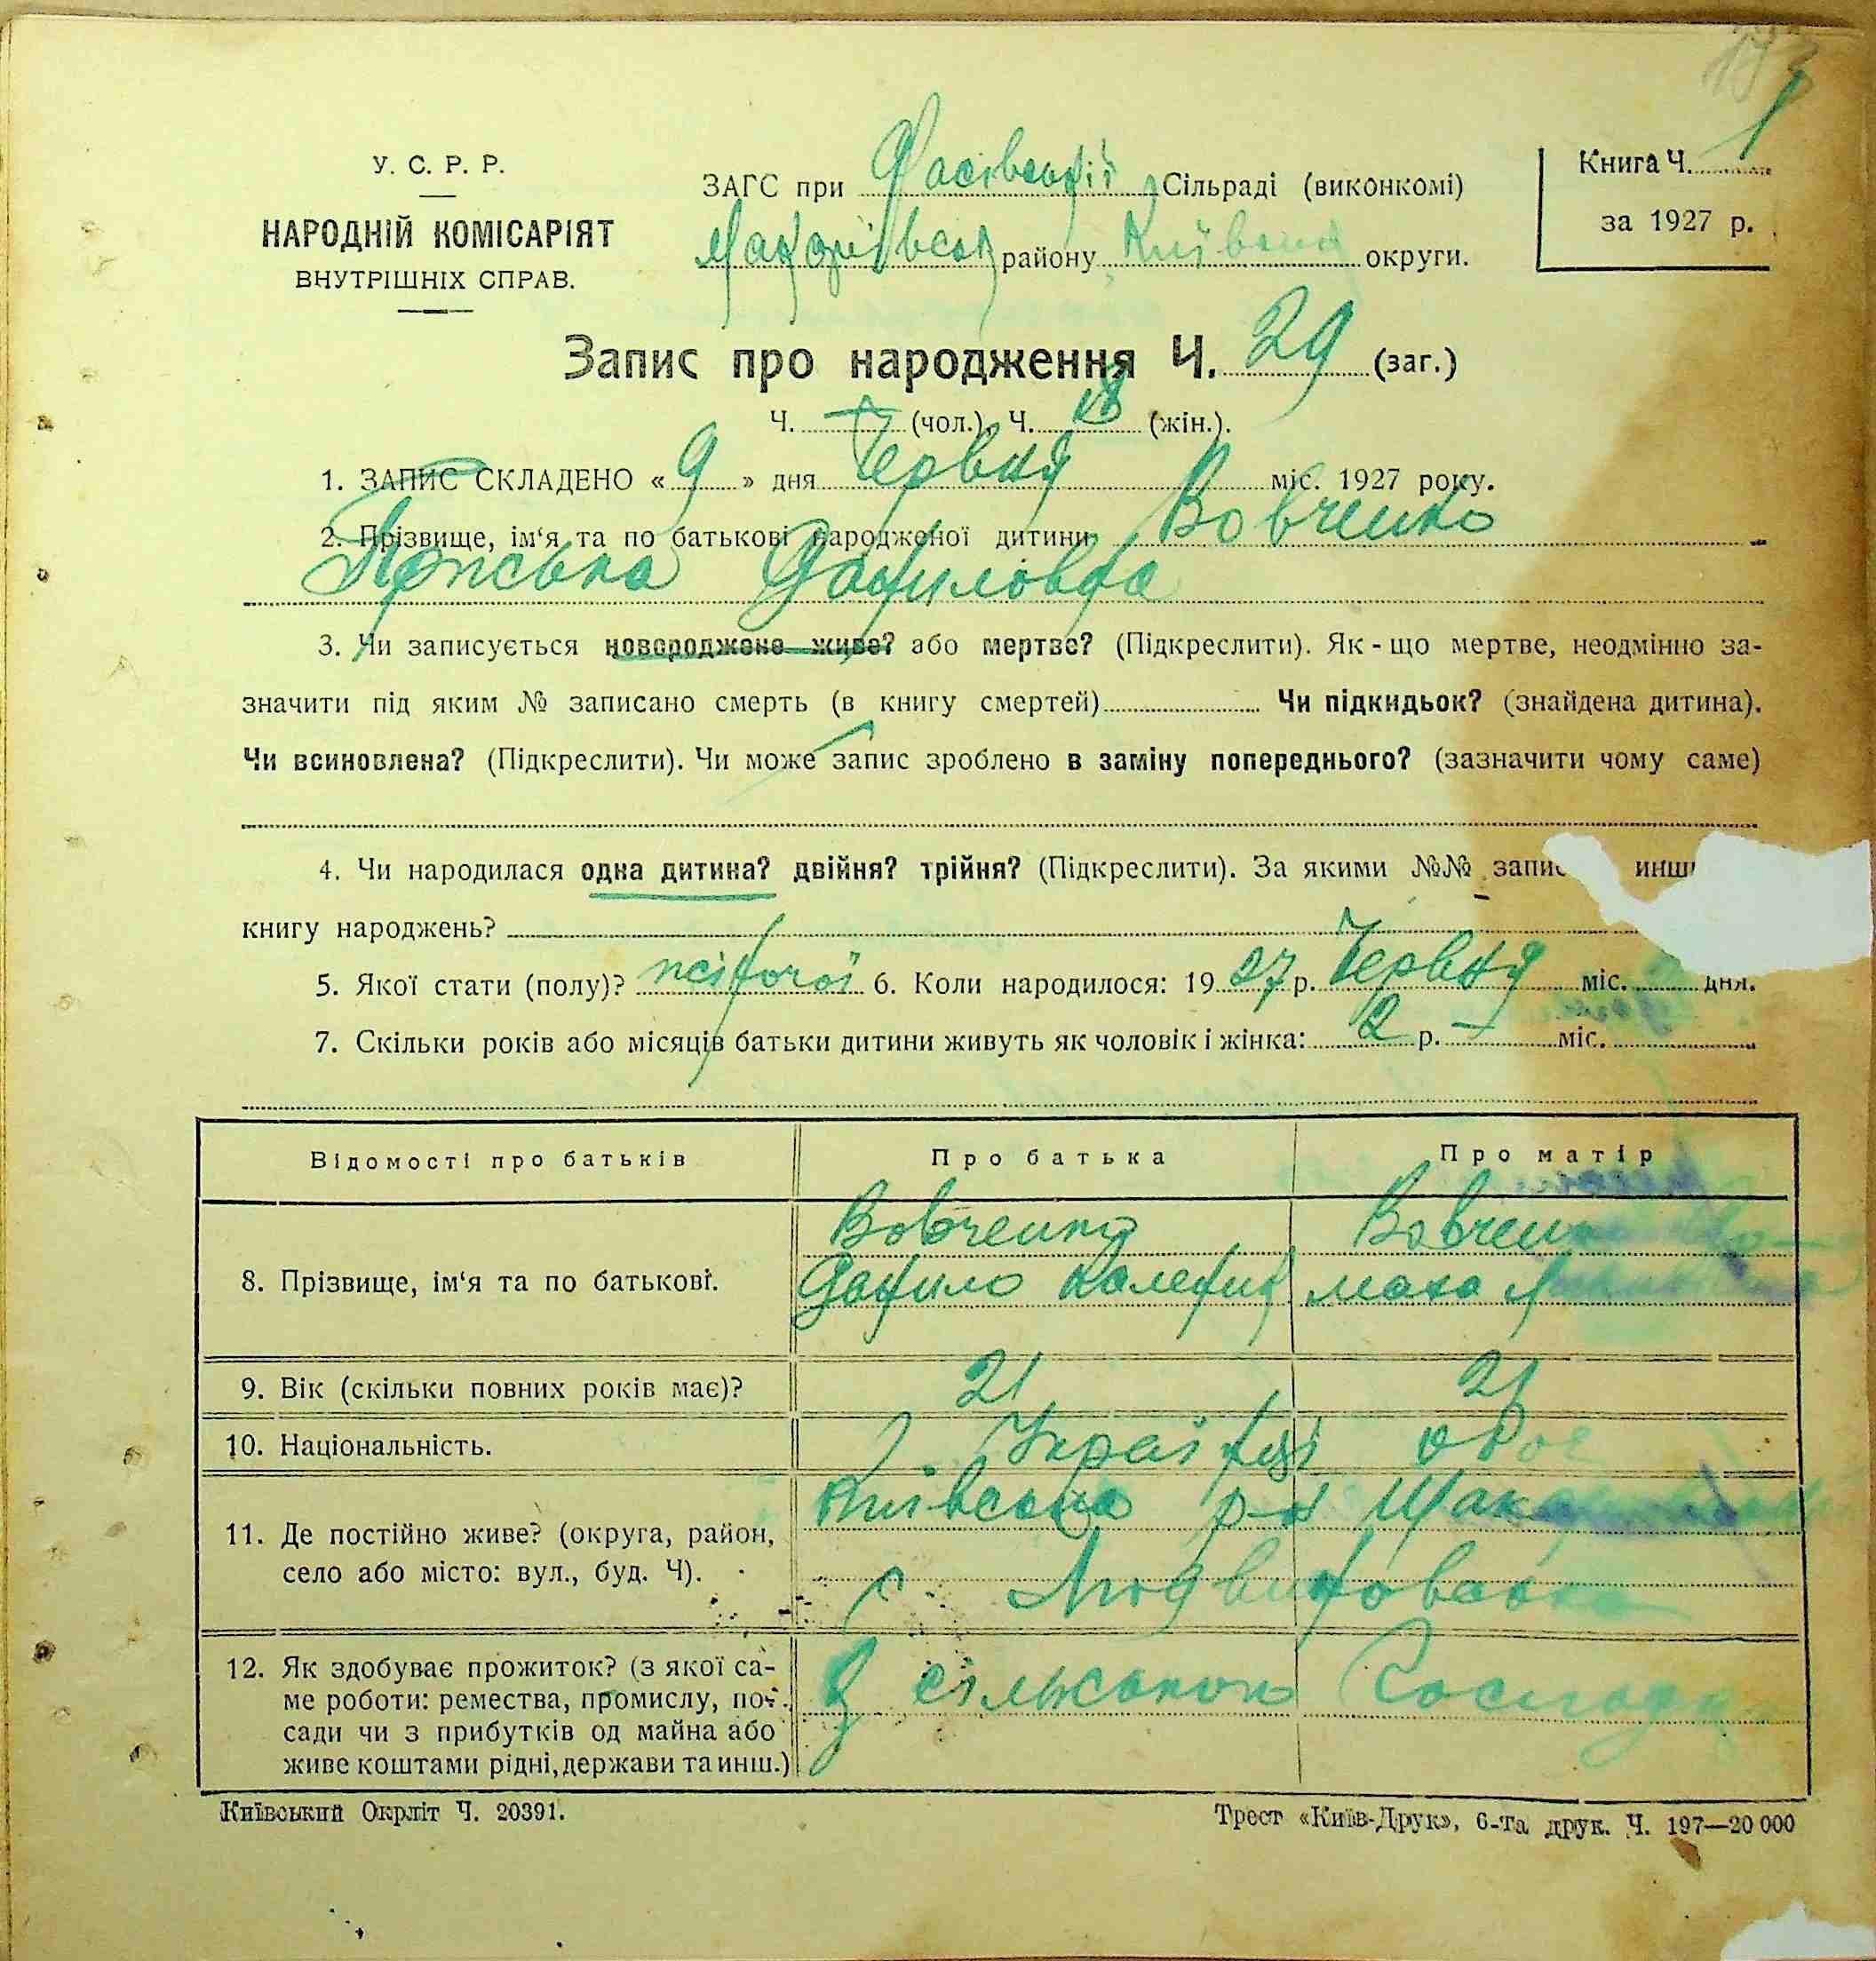 У. С. Р. Р.
НАРОДНІЙ КОМІСАРІЯТ
ВНУТРІШНІХ СПРАВ.
ЗАГС при Фасівській Сільраді (виконкомі)
району Київськ округи.
Книга Ч. 1
за 1927 р.
Запис про народження Ч. 29 (заг.)
Ч. — (чол.), Ч. 18 (жін.).
1. ЗАПИС СКЛАДЕНО « 9 » дня Червня міс. 1927 року.
2. Прізвище, ім‘я та по батькові народженої дитини Вовченко
Даниловна
3. Чи записується новороджене живе? або мертве? (Підкреслити). Як-що мертве, неодмінно за-
значити під яким № записано смерть (в книгу смертей) Чи підкидьок? (знайдена дитина).
Чи всиновлена? (Підкреслити). Чи може запис зроблено в заміну попереднього? (зазначити чому саме)
4. Чи народилася одна дитина? двійня? трійня? (Підкреслити). За якими №№
книгу народжень?
5. Якої стати (полу)? 6. Коли народилося: 19 27 р. Червня міс. дня.
7. Скільки років або місяців батьки дитини живуть як чоловік і жінка: 2 р. — міс.
Відомості про батьків Про батька Про матір
8. Прізвище, ім‘я та по батькові. Вовченко Вовченко
Данило
9. Вік (скільки повних років має)? 21 21
10. Національність. Українці обоє
11. Де постійно живе? (округа, район,
село або місто: вул., буд. Ч).
Київська р-н
с.
12. Як здобуває прожиток? (з якої са-
ме роботи: ремества, промислу, по-
сади чи з прибутків од майна або
живе коштами рідні, держави та инш.)
З сільського
Київський Окрліт Ч. 20391.
Трест «Київ-Друк», 6-та друк. Ч. 197—20 000